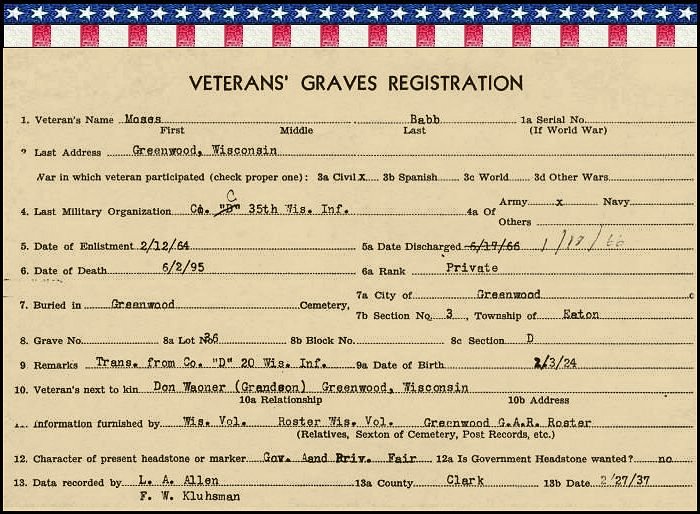 VETERANS' GRAVES REGISTRATION
1. Veteran's Name Moses Babb 1a Serial No.
First Middle Last (If World War)
2 Last Address Greenwood, Wisconsin
War in which veteran participated (check proper one): 3a Civil x 3b Spanish 3c World 3d Other Wars
4. Last Military Organization Co. "D" C 35th Wis. Inf. 4a Of Army x Navy
Others
5. Date of Enlistment 2/12/64 5a Date Discharged 6/17/66 1/17/66
6. Date of Death 6/2/95 6a Rank Private
7. Buried in Greenwood Cemetery, 7a City of Greenwood
7b Section No. 3, Township of Eaton
8. Grave No. 8a Lot No 36 8b Block No. 8c Section D
9 Remarks Trans. from Co. "D" 20 Wis. Inf. 9a Date of Birth 2/3/24
10. Veteran's next to kin Don Waoner (Grandson) Greenwood, Wisconsin
10a Relationship 10b Address
Information furnished by Wis. Vol. Roster Wis. Vol. Greenwood G.A.R. Roster
(Relatives, Sexton of Cemetery, Post Records, etc.)
12. Character of present headstone or marker Gov. Aand Priv. Fair 12a Is Government Headstone wanted? no
13. Data recorded by L. A. Allen 13a County Clark 13b Date 2/27/37
F. W. Kluhsman